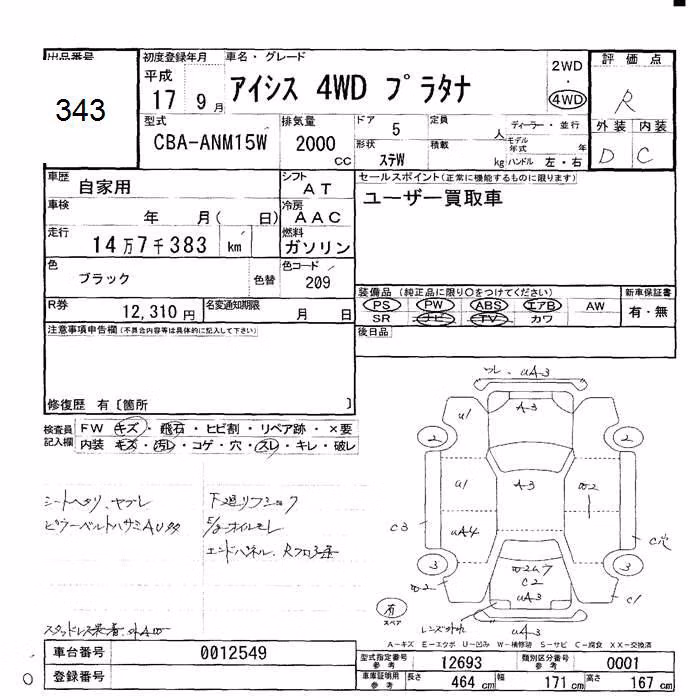 出品番号
343
初度登録年月
平成
17 9 月
車名・グレード
アイシス 4WD プラタナ
2WD
・
4WD
評価点
R
外装 内装
D C
型式
CBA-ANM15W
排気量
2000
CC
ドア
5
定員
人
ディーラー・並行
形状
ステW
積載
kg
モデル年式
年
ハンドル 左・右
車歴
自家用
シフト
AT
セールスポイント(正常に機能するものに限ります)
ユーザー買取車
車検
年 月( 日)
冷房
AAC
走行
14万7千383 km
燃料
ガソリン
色
ブラック
色替
色コード
209
装備品 (純正品に限り○をつけてください)
PS PW ABS エアB AW
SR ナビ TV カワ
新車保証書
有・無
R券
12,310 円
名変通知期限
月 日
後日品
注意事項申告欄(不具合内容等は具体的に記入して下さい)
修復歴 有〔箇所 〕
検査員記入欄
FW キズ・飛石・ヒビ割・リペア跡・×要
内装 キズ・汚レ・コゲ・穴・スレ・キレ・破レ
シートヘタリ、ヤブレ
ピラーベルトハサミAU多
下廻リフショク
E/gオイルモレ
スタッドレス装着・外A
uA3
A-3
u1
2
2
u1
A-3
C3
uA4
C穴
3
3
C2
uA3
C1
有
スペア
レンズ外れ
uA3
A-キズ E-エクボ U-凹み W-補修跡 S-サビ C-腐食 XX-交換済
車台番号
0012549
登録番号
0
型式指定番号
参考
12693
類別区分番号
参考
0001
車庫証明用
参考
長さ
464 cm
幅
171 cm
高さ
167 cm